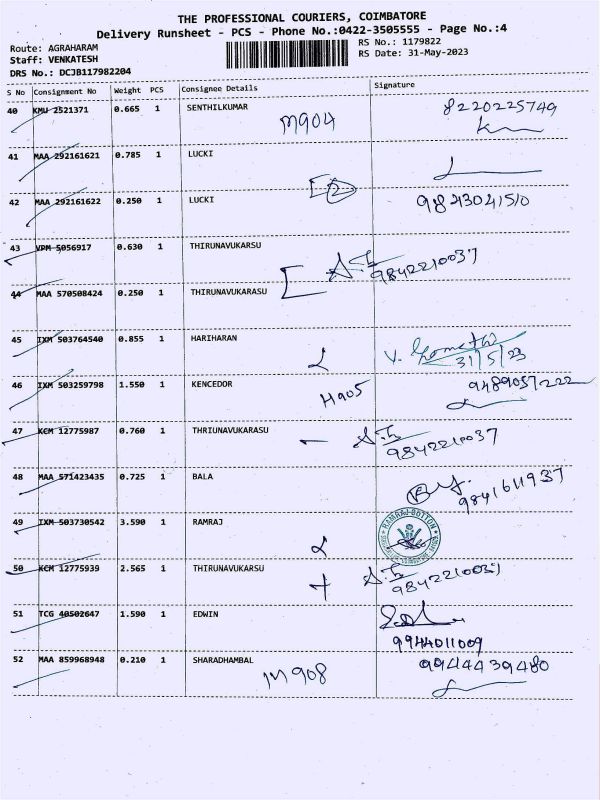 THE PROFESSIONAL COURIERS, COIMBATORE
Delivery Runsheet - PCS - Phone No.:0422-3505555 - Page No.:4
Route: AGRAHARAM RS No.: 1179822
Staff: VENKATESH RS Date: 31-May-2023
DRS No.: DCJB117982204
S No Consignment No Weight PCS Consignee Details Signature
40 KMU 2521371 0.665 1 SENTHILKUMAR 8220225749
M904
41 MAA 292161621 0.785 1 LUCKI
2
42 MAA 292161622 0.250 1 LUCKI 9843041510
43 VPM 5056917 0.630 1 THIRUNAVUKARSU
9842210037
44 MAA 570508424 0.250 1 THIRUNAVUKARASU
45 IXM 503764540 0.855 1 HARIHARAN
V. Gomathi
31/5/23
46 IXM 503259798 1.550 1 KENCEDOR 9489057222
H905
47 KCM 12775987 0.760 1 THRIUNAVUKARASU
9842210037
48 MAA 571423435 0.725 1 BALA
9841611937
49 IXM 503730542 3.590 1 RAMRAJ
RAMRAJ COTTON
50 KCM 12775939 2.565 1 THIRUNAVUKARSU
9842210037
51 TCG 40502647 1.590 1 EDWIN
9944011009
52 MAA 859968948 0.210 1 SHARADHAMBAL 9944439480
M908